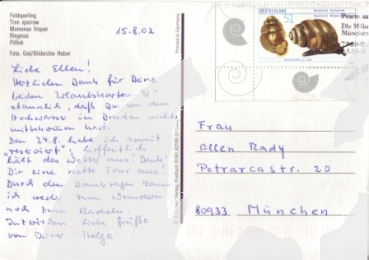 Feldsperling
Tree sparrow
Moineau friquet
Ringmus
Pilfink
15.8.02
Liebe Ellen!
Herzlichen Dank für Deine
beiden Urlaubskarten.
daß Du von dem
Hochwasser in Dresden nichts
mitbekommen hast.
Den 24.8. habe ich somit
"reserviert"; hoffentlich
hält das Wetter aus! Denk
Dir eine nette Tour aus!
Durch den Dauerregen kam
ich weder zum Wandern
noch zum Radeln.
Inzwischen liebe Grüße
von Deiner Helga
DEUTSCHLAND
51
Frau
Ellen Rady
Petrarcastr. 20
80933 München